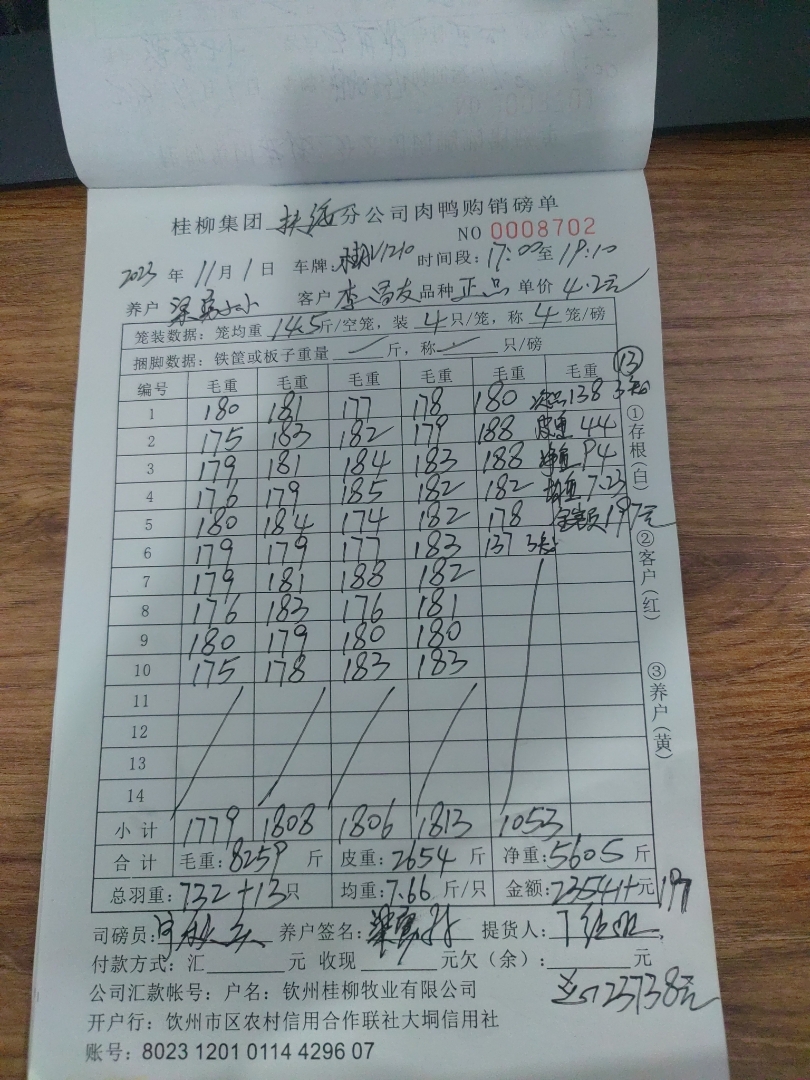 桂柳集团 扶绥 分公司肉鸭购销磅单
NO 0008702
2023 年 11 月 1 日 车牌: 时间段: 17:00 至 19:10
养户 梁 客户 李昌友 品种 正品 单价 4.2元
笼装数据: 笼均重 14.5 斤/空笼, 装 4 只/笼, 称 4 笼/磅
捆脚数据: 铁筐或板子重量 斤, 称 只/磅
编号 毛重 毛重 毛重 毛重 毛重 毛重 ⑬
1 180 181 177 178 180 次品138 3
2 175 183 182 179 188 皮重 44
3 179 181 184 183 188 净重 94
4 176 179 185 182 182 均重 7.23
5 180 184 174 182 178 金额 197元
6 179 179 177 183 137
7 179 181 188 182
8 176 183 176 181
9 180 179 180 180
10 175 178 183 183
11
12
13
14
小计 1779 1808 1806 1813 1053
合计 毛重: 8259 斤 皮重: 2654 斤 净重: 5605 斤
总羽重: 732+13 只 均重: 7.66 斤/只 金额: 23541+ 元 197
司磅员: 养户签名: 梁 提货人:
付款方式: 汇 元 收现 元欠(余): 元
公司汇款帐号: 户名: 钦州桂柳牧业有限公司 23738元
开户行: 饮州市区农村信用合作联社大垌信用社
账号: 8023 1201 0114 4296 07
①存根(白) ②客户(红) ③养户(黄)